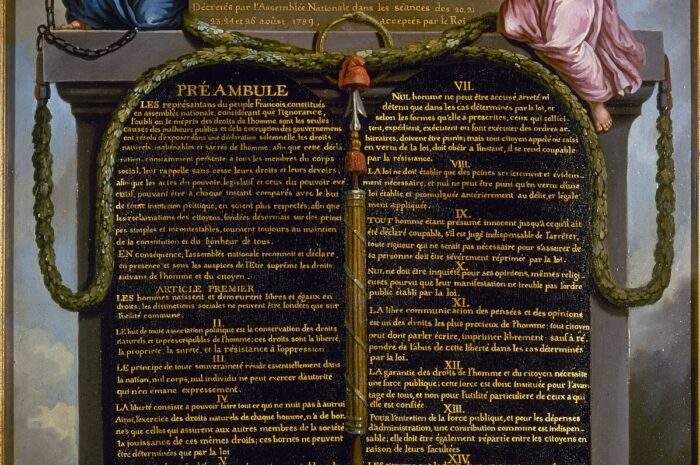 Décretés par l'Assemblée Nationale dans les séances des 20, 21
23, 24 et 26 août 1789, acceptés par le Roi
PRÉAMBULE
LES représentans du peuple François, constitués
en assemblée nationale, considérant que l'ignorance,
l'oubli ou le mépris des droits de l'homme sont les seules
causes des malheurs publics et de la corruption des gouvernemens
ont résolu d'exposer dans une déclaration solemnelle, les droits
naturels, inaliénables et sacrés de l'homme; afin que cette décla
ration, constamment présente a tous les membres du corps
social, leur rappelle sans cesse leurs droits et leurs devoirs;
afin que les actes du pouvoir législatif et ceux du pouvoir exé
cutif, pouvant être a chaque instant comparés avec le but
de toute institution politique, en soient plus respectés; afin que
les réclamations des citoyens, fondées désormais sur des prin
pes simples et incontestables, tournent toujours au maintien
de la constitution et du bonheur de tous.
EN conséquence, l'assemblée nationale reconnoit et déclare
en presence et sous les auspices de l'Etre suprême les droits
suivans de l'homme et du citoyen.
ARTICLE PREMIER
LES hommes naissent et demeurent libres et égaux en
droits; les distinctions sociales ne peuvent être fondées que sur
l'utilité commune.
II.
LE but de toute association politique est la conservation des droits
naturels et imprescriptibles de l'homme; ces droits sont la liberté,
la propriété, la sureté, et la résistance à l'oppression.
III
LE principe de toute souveraineté réside essentiellement dans
la nation, nul corps, nul individu ne peut exercer d'autorité
qui n'en émane expressement.
IV
LA liberté consiste a pouvoir faire tout ce qui ne nuit pas à autrui
Ainsi, l'exercice des droits naturels de chaque homme, n'a de bor-
nes que celles qui assurent aux autres membres de la société
la jouissance de ces mêmes droits; ces bornes ne peuvent
être déterminées que par la loi
V
VII.
NUL homme ne peut être accusé, arreté ni
détenu que dans les cas déterminés par la loi, et
selon les formes qu'elle a prescrites, ceux qui sollici
tent, expédient, exécutent ou font exécuter des ordres ar
bitraires, doivent être punis; mais tout citoyen appelé ou saisi
en vertu de la loi, doit obéir a l'instant, il se rend coupable
par la résistance.
VIII.
LA loi ne doit établir que des peines strictement et évidem-
ment nécessaire, et nul ne peut être puni qu'en vertu d'une
loi établie et promulguée antérieurement au délit, et légale
ment appliquée.
IX.
TOUT homme étant présumé innocent jusqu'a ce qu'il ait
été déclaré coupable, s'il est jugé indispensable de l'arrêter,
toute rigueur qui ne serait pas nécessaire pour s'assurer de
sa personne doit être sévèrement réprimée par la loi.
X.
NUL ne doit être inquiété pour ses opinions, mêmes religi
euses pourvu que leur manifestation ne trouble pas l'ordre
public établi par la loi.
XI.
LA libre communication des pensées et des opinions
est un des droits les plus precieux de l'homme; tout citoyen
peut donc parler écrire, imprimer librement: sauf à ré
pondre de l'abus de cette liberté dans les cas déterminés
par la loi.
XII.
LA garantie des droits de l'homme et du citoyen nécessite
une force publique; cette force est donc instituée pour l'avan
tage de tous, et non pour l'utilité particuliere de ceux a qui
elle est confiée
XIII.
Pour l'entretien de la force publique, et pour les dépenses
d'administration, une contribution commune est indispen-
sable; elle doit être également répartie entre les citoyens en
raison de leurs facultées
XIV.